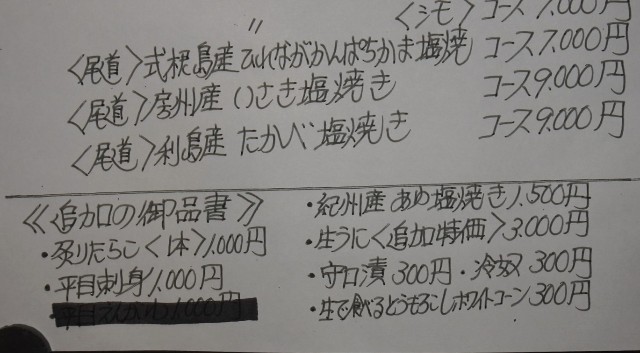 〃 〈シモ〉 コース7.000円
〈尾道〉式根島産ひれながかんぱちかま塩焼 コース7.000円
〈尾道〉房州産 いさき塩焼き コース9.000円
〈尾道〉利島産 たかべ塩焼き コース9.000円
《追加の御品書》
・炙りたらこ〈1本〉1.000円
・平目刺身1.000円
・平目えんがわ1.000円
・紀州産 あゆ塩焼き1.500円
・生うに〈追加特価〉3.000円
・守口漬 300円 ・冷奴 300円
・生で食べるとうもろこしホワイトコーン300円